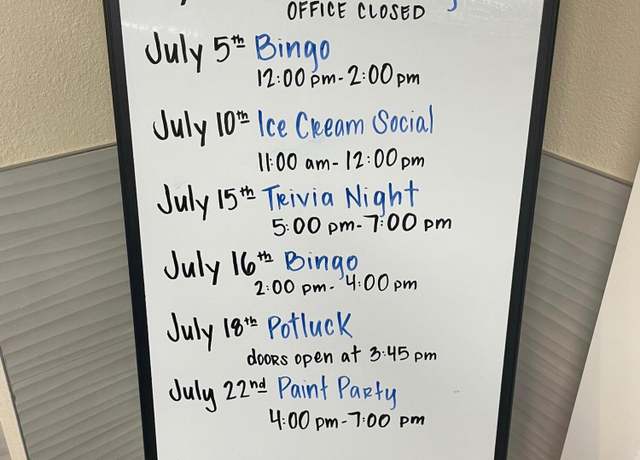 OFFICE CLOSED
July 5th Bingo
12:00 pm - 2:00 pm
July 10th Ice Cream Social
11:00 am - 12:00 pm
July 15th Trivia Night
5:00 pm - 7:00 pm
July 16th Bingo
2:00 pm - 4:00 pm
July 18th Potluck
doors open at 3:45 pm
July 22nd Paint Party
4:00 pm - 7:00 pm